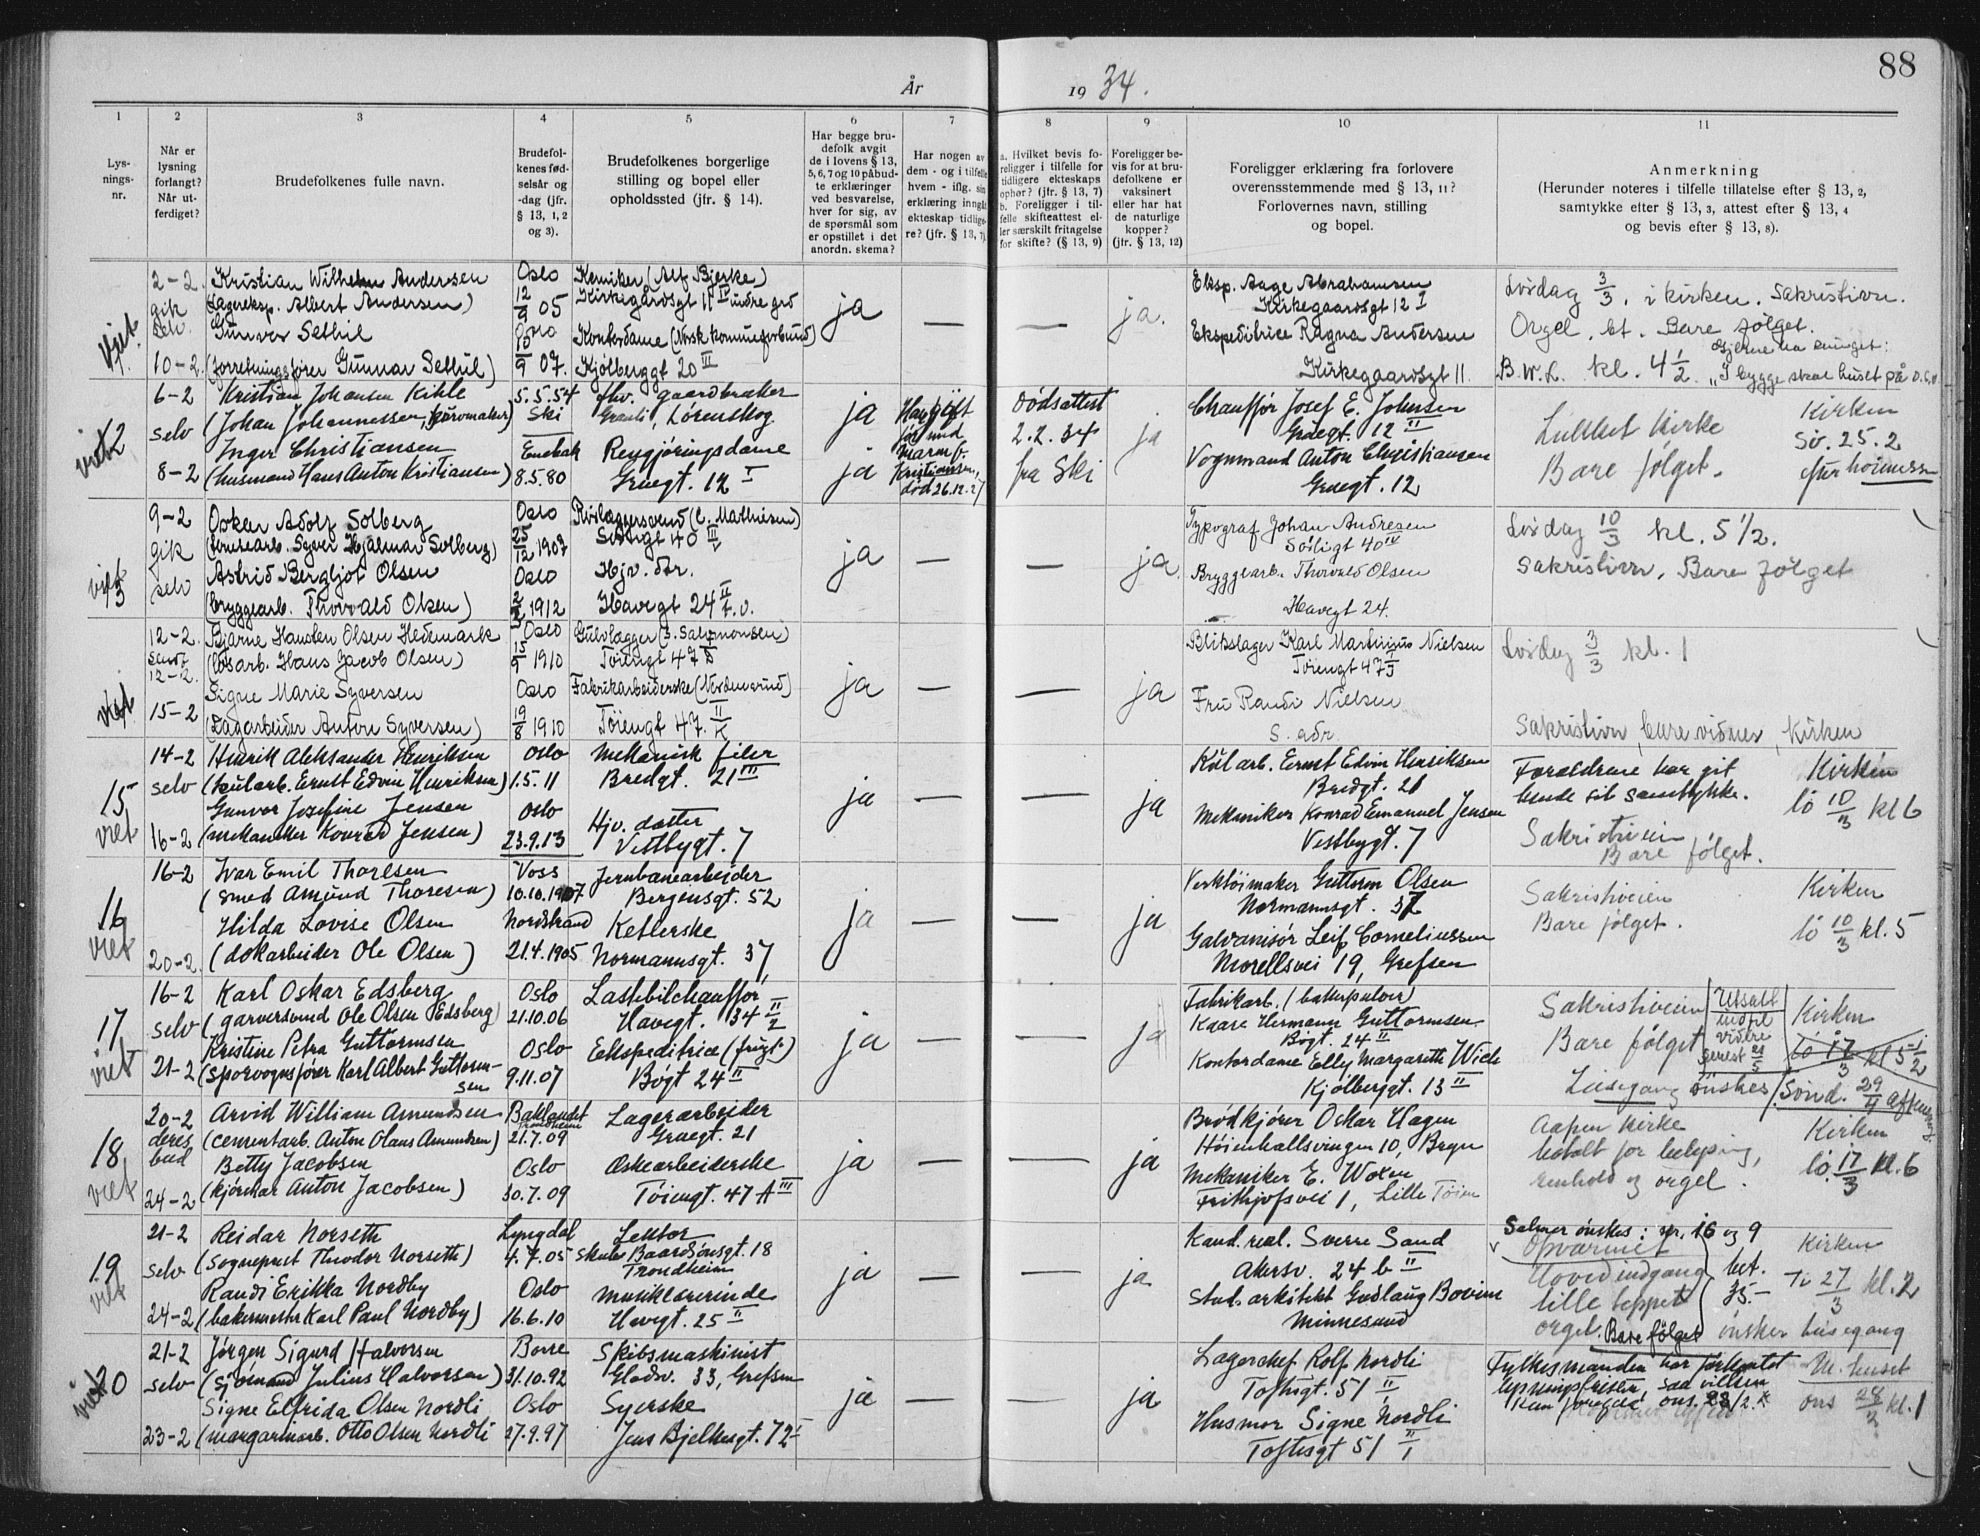 88
År 1934.
1 2 3 4 5 6 7 8 9 10 11
Lysningsnr.
Når er lysning forlangt? Når utferdiget?
Brudefolkenes fulle navn.
Brudefolkenes fødselsår og -dag (jfr. § 13, 1, 2 og 3).
Brudefolkenes borgerlige stilling og bopel eller opholdssted (jfr. § 14).
Har begge brudefolk avgit de i lovens § 13, 5, 6, 7 og 10 påbudte erklæringer ved besvarelse, hver for sig, av de spørsmål som er opstillet i det anordn. skema?
Har nogen av dem - og i tilfelle hvem - iflg. sin erklæring inngått ekteskap tidligere? (jfr. § 13, 7).
a. Hvilket bevis foreligger i tilfelle for tidligere ekteskaps ophør? (jfr. § 13, 7) b. Foreligger i tilfelle skifteattest eller særskilt fritagelse for skifte? (§ 13, 9)
Foreligger bevis for at brudefolkene er vaksinert eller har hat de naturlige kopper? (jfr. § 13, 12)
Foreligger erklæring fra forlovere overensstemmende med § 13, 11? Forlovernes navn, stilling og bopel.
Anmerkning (Herunder noteres i tilfelle tillatelse efter § 13, 2, samtykke efter § 13, 3, attest efter § 13, 4 og bevis efter § 13, 8).
2-2 Kristian Wilhelm Andersen Oslo Kemiker (Alf Bjerke) Eksp. Aage Abrahamsen Lørdag 3/3. i kirken. Sakristien.
gik (Lagereksp. Albert Andersen) 12/9 05 Kirkegaardsgt 11 IV indre grd ja — — ja. Kirkegaardsgt 12 I
selv Gunvor Sethil Oslo Kontordame (Norsk kommuneforbund) Ekspeditrice Ragna Andersen Orgel. bt. Bare følget.
10-2. (forretningsfører Gunnar Sethil) 10/9 07. Kjølberggt 20 III Kirkegaardsgt 11. B.W.L. kl. 4 1/2. "I bygge skal huset på
6-2 Kristian Johansen Kihle 5.5.54 fhv. gaardbruker ja Har gift Dødsattest Chauffør Josef E. Johnsen Kirken
viet 2 selv (Johan Johannessen, kurvmaker) Ski Lørenskog før med 2.2.34 ja Gruegt. 12 II Lukket Kirke Sø. 25.2
Inger Christiansen Enebak Rengjøringsdame Vognmand Anton Christiansen Bare følget.
8-2 (husmand Hans Anton Kristiansen) 8.5.80 Gruegt. 12 I ja Kristiansen, død 26.12.27 fra Ski Gruegt. 12
9-2 Oskar Adolf Solberg Oslo Rørlæggersvend (C. Mathisen) Typograf Johan Andresen Lørdag 10/3 kl. 5 1/2.
gik Syver Hjalmar Solberg) 25/12 1907 Sørligt 40 ja — — ja Sørligt 40 IV
3 selv Astrid Bergljot Olsen Oslo Hjv. dtr. Bryggearb. Thorvald Olsen Sakristien, Bare følget
(bryggearb. Thorvald Olsen) 1912 Havegt 24 II t.v. Havegt 24.
12-2. Bjarne Hansten Olsen Hedemark Oslo Gulvlægger (S. Salomonsen) Blikslager Karl Martinius Nielsen Lørdag 3/3 kl. 1
(løsarb. Hans Jacob Olsen) 15/9 1910 Tøiengt 47 Tøiengt 47
12-2. Signe Marie Syversen Oslo Fabrikarbeiderske ja — — ja Fru Randi Nielsen
15-2 (Lagerarbeider Anton Syversen) 19/8 1910 Tøiengt 47. S. adr. Sakristien, bare vidner, Kirken
14-2 Henrik Aleksander Henriksen Oslo Mekanisk filer Kularb. Ernst Edvin Henriksen Forældrene har git Kirken
15 selv (kularb. Ernst Edvin Henriksen) 1.5.11 Bredgt. 21 III ja — — ja Bredgt. 21 sit samtykke. lø 10/3 kl 6
viet Gunvor Josefine Jensen Oslo Hjv. datter Mekaniker Konrad Emanuel Jensen Sakristieien
16-2 (mekaniker Konrad Jensen) 23.9.13 Vestbygt. 7 Vestbygt. 7 Bare følget.
16-2 Ivar Emil Thoresen Voss Jernbanearbeider Verktøimaker Guttorm Olsen Sakristieien Kirken
16 (Smed Amund Thoresen) 10.10.1907 Bergensgt. 52 ja — — ja Normannsgt. 37 Bare følget. lø 10/3 kl. 5
viet Hilda Lovise Olsen Nordstrand Ketlerske Galvanisør Leif Corneliussen
20-2. (dokarbeider Ole Olsen) 21.4.1905 Normannsgt. 37 Morellsvei 19, Grefsen
16-2 Karl Oskar Edsberg Oslo Lastebilchauffør Fabrikarb. (bakerpulver) Sakristieien Utsatt indtil videre senest Kirken
17 selv (garversvend Ole Olsen Edsberg) 21.10.06 Havegt. 34 II/2 ja — — ja Kaare Hermann Guttormsen Bøgt. 24 II Bare følget lø 17/3 kl 5 1/2
viet Kristine Petra Guttormsen Oslo Ekspeditrice (frugt) Kontordame Elly Margareth Wiele
21-2 (sporvognsfører Karl Albert Guttormsen 9.11.07 Bøgt 24 II Kjølbergt. 13 II ønskes / Sønd. 29/4
20-2 Arvid William Amundsen Baklandet Trondheim Lagerarbeider Brødkjører Oskar Hagen Aapen Kirke Kirken
18 deres bud (cementarb. Anton Olaus Amundsen) 21.7.09 Gruegt. 21 ja — — ja Høienhallsvingen 10, Bryn betalt for belysning, lø. 17/3 kl. 6
viet Betty Jacobsen Oslo Æskearbeiderske Mekaniker E. Woxen renhold og orgel.
24-2 (kjørekar Anton Jacobsen) 30.7.09 Tøiengt. 47 A III Frithjofsvei 1, Lille Tøien
21-2 Reidar Norseth Lyngdal Lektor Kand. real. Sverre Sand Salmer ønskes: nr. 16 og 9
19 selv (Sogneprest Theodor Norseth) 4.7.05 Skule Baardsønsgt. 18 Trondheim ja — — ja Akersv. 24 b II Opvarmet Kirken
viet Randi Erikka Nordby Oslo Musiklærerinde Stud. arkitekt Gudlaug Bovim Hovedindgang bet. Ti 27/3 kl. 2
24-2 (bakermester Karl Paul Nordby) 16.6.10 Havegt. 25 II Minnesund lille teppet 35.-
orgel. Bare følget ønsker
21-2 Jørgen Sigurd Halvorsen Borre Skibsmaskinist Lagerchef Rolf Nordli Fylkesmanden har forkortet M. huset
viet 20 selv (Sjømand Julius Halvorsen) 31.10.92 Gladsv. 33, Grefsen ja — — ja Toftesgt. 51 II lysningsfristen, saa vielsen
Signe Elfrida Olsen Nordli Oslo Syerske Husmor Signe Nordli kan foregaa ons. 28/2. ons 28/2 kl. 1
23-2 (margarinarb. Otto Olsen Nordli 27.9.97 Jens Bjelkesgt. 72 I Toftesgt 51 II